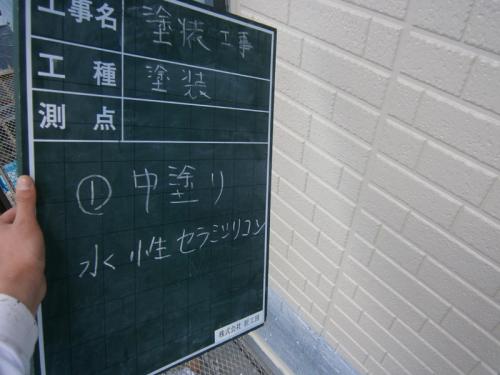 工事名 塗装工事
工種 塗装
測点
① 中塗り
水性セラミシリコン
株式会社